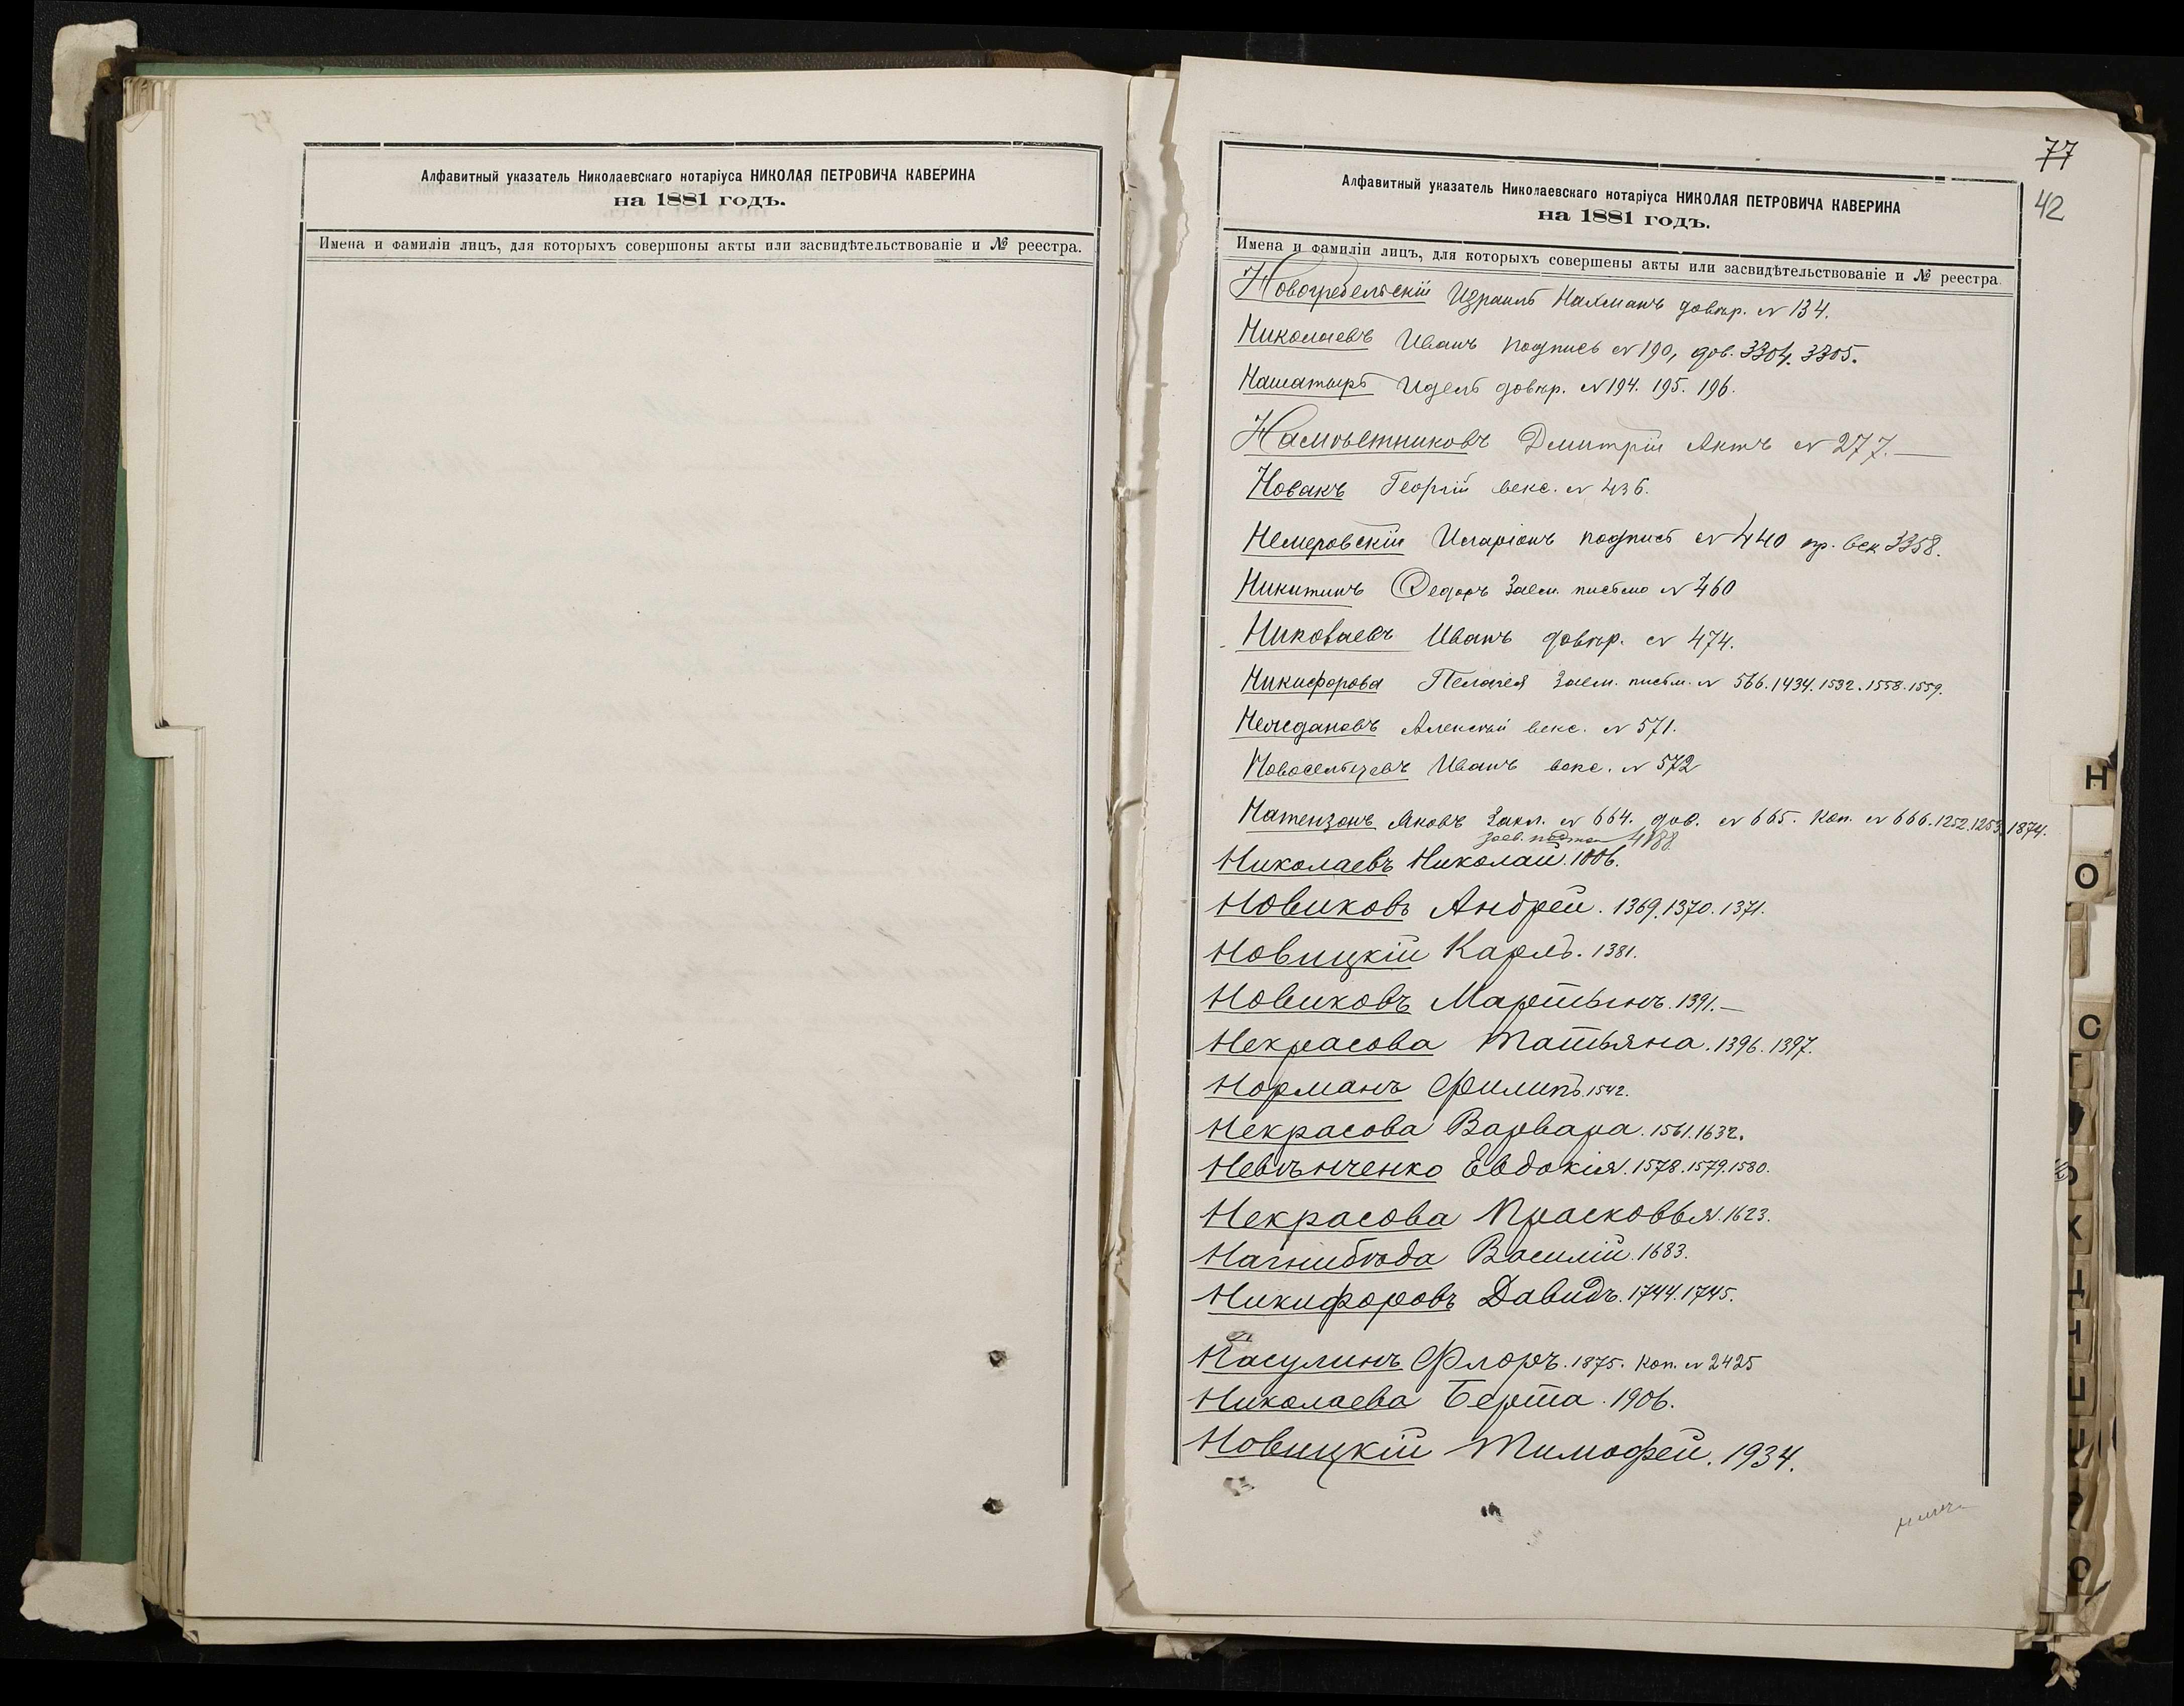 Алфавитный указатель Николаевскаго нотаріуса НИКОЛАЯ ПЕТРОВИЧА КАВЕРИНА
на 1881 годъ.
Имена и фамиліи лицъ, для которыхъ совершоны акты или засвидѣтельствованіе и № реестра.
77
42
Алфавитный указатель Николаевскаго нотаріуса НИКОЛАЯ ПЕТРОВИЧА КАВЕРИНА
на 1881 годъ.
Имена и фамиліи лицъ, для которыхъ совершены акты или засвидѣтельствованіе и № реестра.
Новогребельскій Израиль Нахманъ довѣр. № 134.
Николаевъ Иванъ подпись № 190, дов. 3304. 3305.
Нашатырь Идель довѣр. № 194. 195. 196.
Намѣстниковъ Дмитрій Актъ № 277.
Новакъ Георгій векс. № 436.
Немеровскій Иларіонъ подпись № 440 пр. век 3358.
Никитинъ Федоръ Заем. письмо № 460
Николаевъ Иванъ довѣр. № 474.
Никифорова Пелагея Заем. письм. № 566. 1434. 1532. 1558. 1559.
Нечедановъ Алексѣй векс. № 571.
Новосельцевъ Иванъ векс. № 572
Натензонъ Яковъ Закл. № 664. дов. № 665. Коп. № 666. 1252. 1253. 1874.
4188
Николаевъ Николай. 1006.
Новиковъ Андрей. 1369. 1370. 1371.
Новицкій Карлъ. 1381.
Новиковъ Мартынъ. 1391.
Некрасова Татьяна. 1396. 1397.
Норманъ Филипъ. 1542.
Некрасова Варвара. 1561. 1632.
Невѣнченко Евдокія. 1578. 1579. 1580.
Некрасова Прасковья. 1623.
Нагнибѣда Василій. 1683.
Никифоровъ Давидъ. 1744. 1745.
Насулинъ Флоръ. 1875. Коп. № 2425
Николаева Берта. 1906.
Новицкій Тимофей. 1934.
Н
О
С